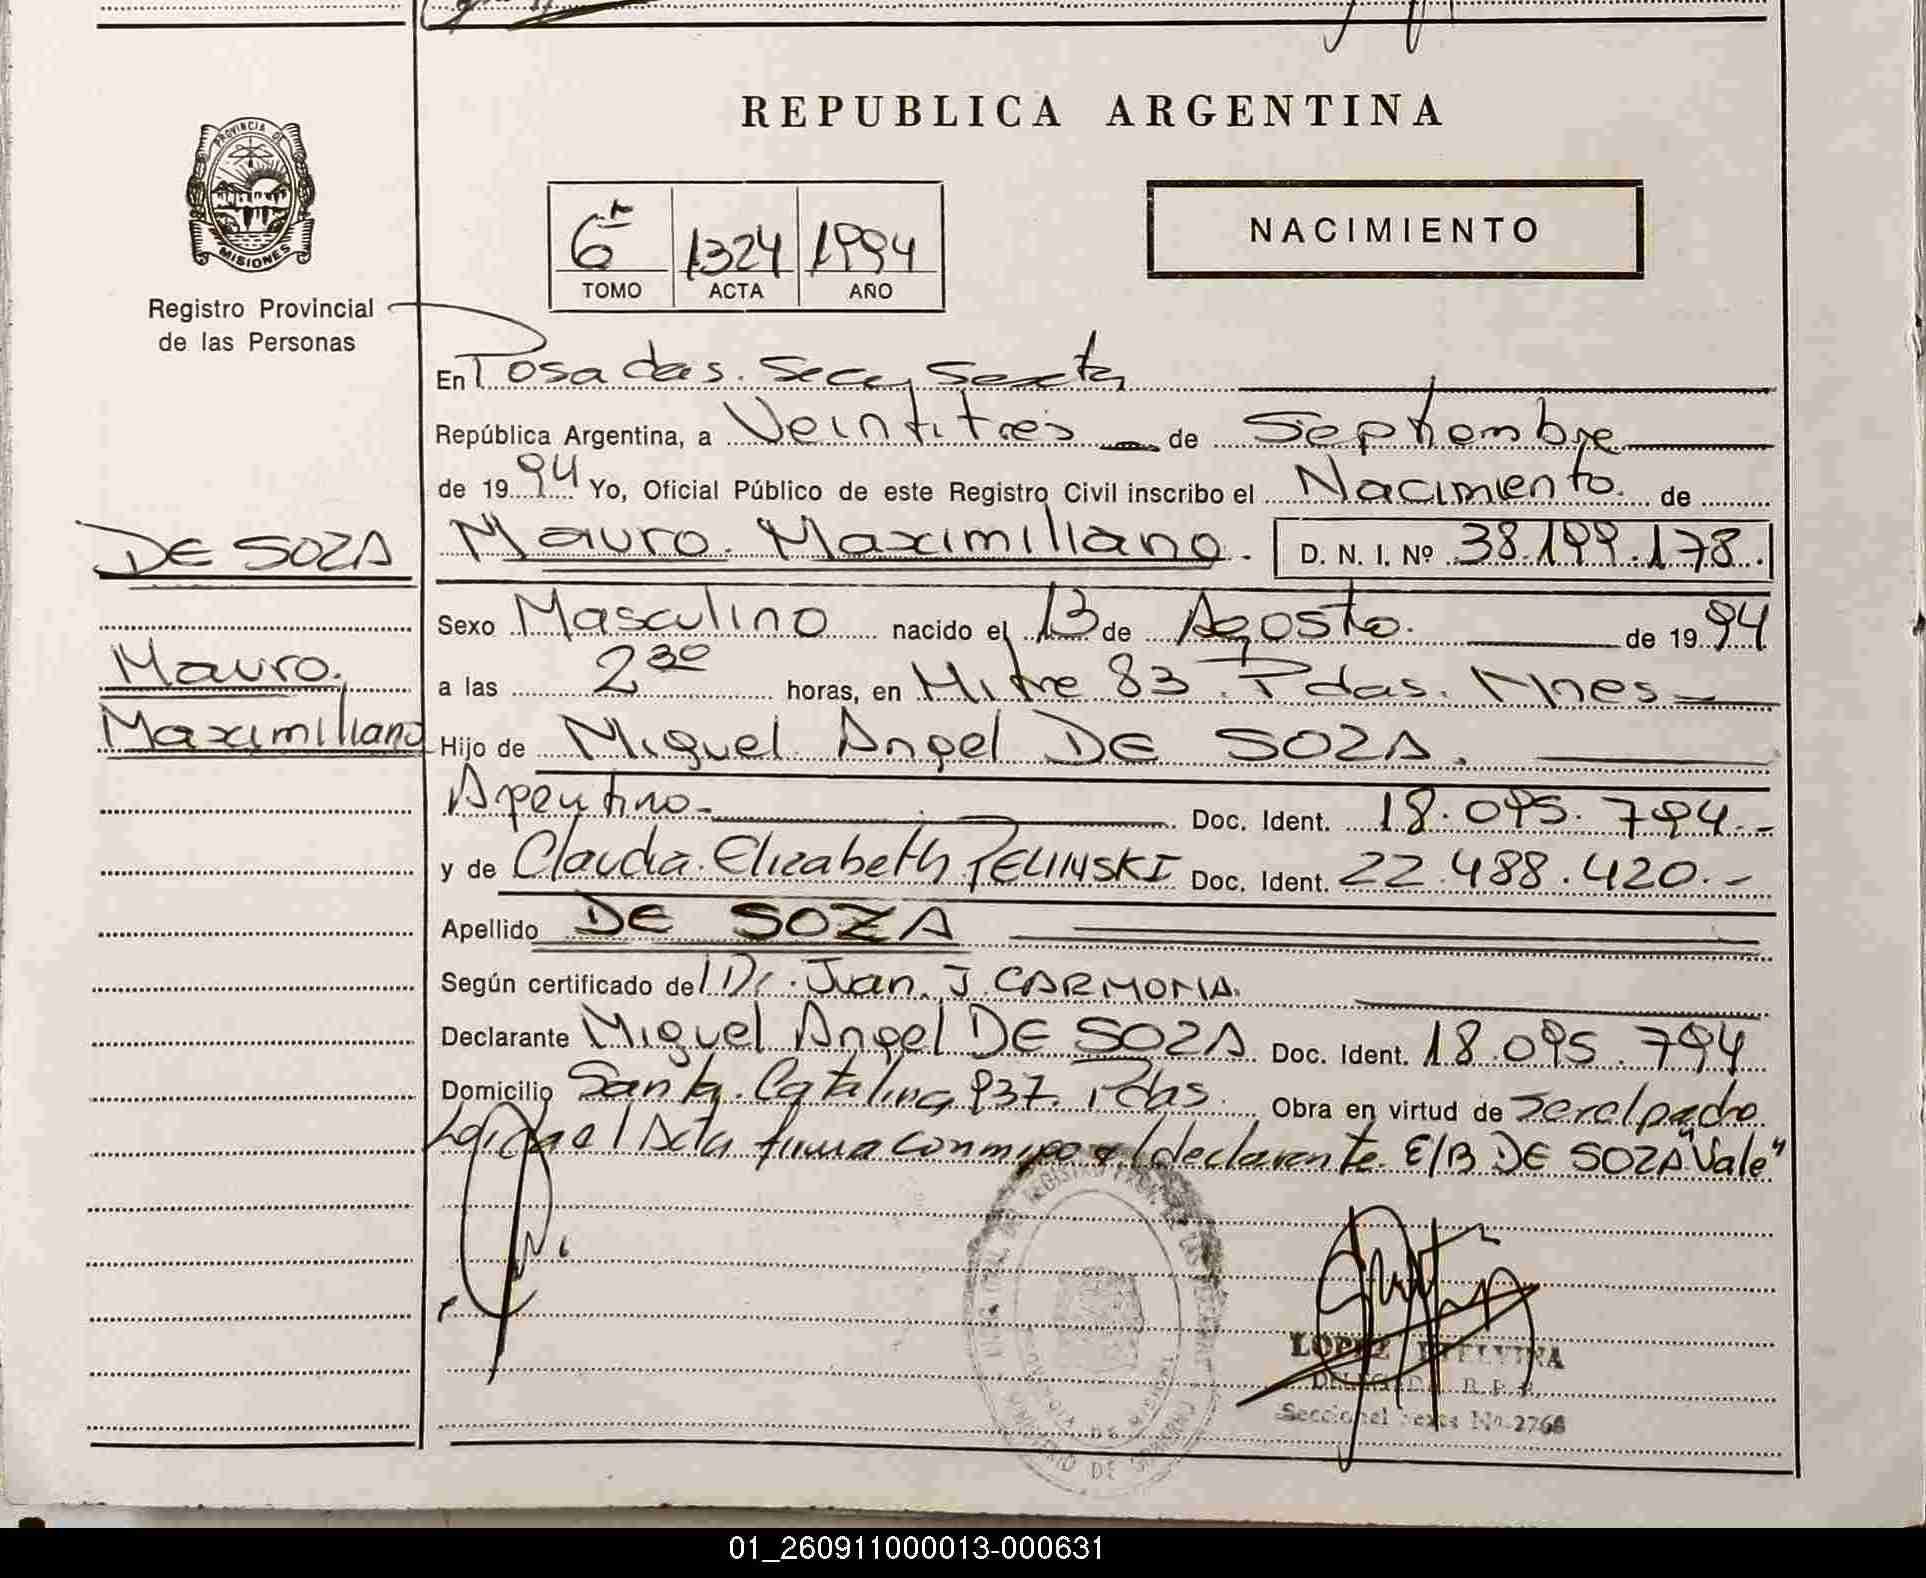 REPUBLICA ARGENTINA
PROVINCIA DE
MISIONES
Registro Provincial
de las Personas
6º 1324 1994
TOMO ACTA AÑO
NACIMIENTO
En Posadas. Secc. Sexta
República Argentina, a Veintitres de Septiembre
de 1994 Yo, Oficial Público de este Registro Civil inscribo el Nacimiento de
DE SOZA
Mauro.
Maximiliano
Mauro. Maximiliano. D. N. I. Nº 38.199.178.
Sexo Masculino nacido el 13 de Agosto. de 1994
a las 2 30 horas, en Mitre 83. Pdas. Mnes
Hijo de Miguel Angel DE SOZA.
Argentino- Doc. Ident. 18.095.794.-
y de Claudia Elizabeth PELINSKI Doc. Ident. 22.488.420.-
Apellido DE SOZA
Según certificado del Dr. Juan. J. CARMONA.
Declarante Miguel Angel DE SOZA Doc. Ident. 18.095.794
Domicilio Santa Catalina 937. Pdas. Obra en virtud de ser el padre
Leida el Acta firma conmigo el declarante. E/B DE SOZA "Vale"
LOPEZ ETELVINA
DELEGADA R. P. P.
Seccional Sexta Nº 2766
01_260911000013-000631